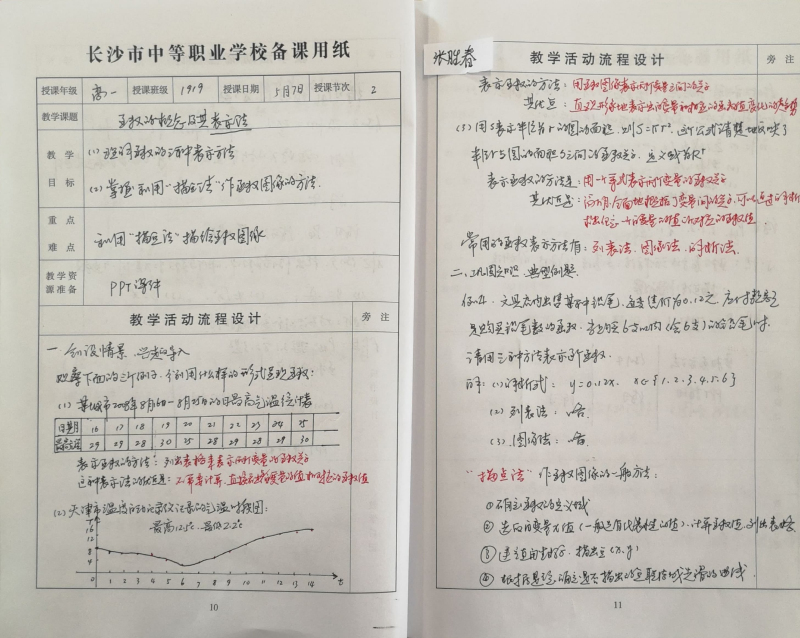 长沙市中等职业学校备课用纸
授课年级 高一 授课班级 1919 授课日期 5月7日 授课节次 2
教学课题 函数的概念及其表示法
教学目标
(1) 理解函数的三种表示方法
(2) 掌握利用"描点法"作函数图像的方法.
重点难点
利用"描点法"描绘函数图像
教学资源准备
PPT 课件
教学活动流程设计 旁注
一 创设情景 兴趣导入
观察下面的三个例子,分别用什么样的形式表现函数:
(1) 某城市2008年8月16日-8月25日的日最高气温统计表
日期 16 17 18 19 20 21 22 23 24 25
最高气温 29 29 28 30 25 28 29 28 29 30
表示函数的方法: 列出表格来表示两个变量的函数关系
这种表示法的优点是: 不需要计算,直接看出自变量的值相对应的函数值
(2) 天津市温度自动记录仪记录的气温时段图:
T 最高12.5℃ 最低2.2℃
16
12
8
4
0 1 2 3 4 5 6 7 8 9 10 11 12 13 14 t
10
张胜春
教学活动流程设计 旁注
表示函数的方法: 用函数图像表示两个变量之间的关系
其优点: 直观形象地表示出自变量和相应的函数值变化的趋势
(3) 用S表示半径为r的圆的面积,则S=πr². 这个公式清楚地反映了
半径r与圆的面积S之间的函数关系,定义域为R⁺
表示函数的方法是: 用一个等式表示两个变量的函数关系
其优点是: 简明、全面地概括了变量间的关系,可以通过解析
式求出任意一个自变量的值所对应的函数值
常用的函数表示方法有: 列表法、图像法、解析法.
二、巩固知识 典型例题
例4: 文具店内出售某种铅笔,每支售价为0.12元,应付款额是
购买铅笔数的函数,当购买6支以内(含6支)的铅笔时.
请用三种方法表示这个函数.
解: (1) 解析式: y=0.12x. x∈{1.2.3.4.5.6}
(2) 列表法: 略.
(3) 图像法: 略.
"描点法"作函数图像的一般方法:
① 确定函数的定义域
② 选取自变量x值(一般选有代表性的值),计算函数值,列出表格
③ 建立直角坐标系,描出点(x.y)
④ 根据题意,确定是否描出的点联结成光滑的曲线
11